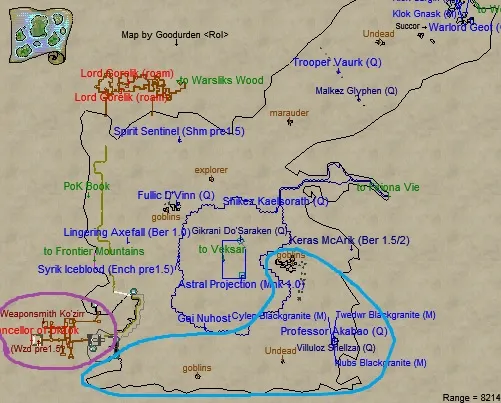 to W
Klok Gnask (M)
Succor→ Warlord Geot (
Undead
Map by Goodurden <RoI>
Trooper Vaurk (Q)
Lord Gorelik (roam)
to Warsliks Wood
Malkez Glyphen (Q)
Lord Gorelik (roam)
marauder
Spirit Sentinel (Shm pre1.5)
explorer
PoK Book
Fullic D'Vinn (Q)
Shikez Kaelsorath (Q)
goblins
Lingering Axefall (Ber 1.0)
Gikrani Do'Saraken (Q)
Keras McArik (Ber 1.5/2)
to Frontier Mountains
to Veksar
goblins
Syrik Iceblood (Ench pre1.5)
Astral Projection (Mnk 1.0)
Weaponsmith Ko'zirr
Twedwr Blackgranite (M)
(Wzd pre1.5)
Professor Akabao (Q)
Nubs Blackgranite (M)
Undead
goblins
Range = 8214